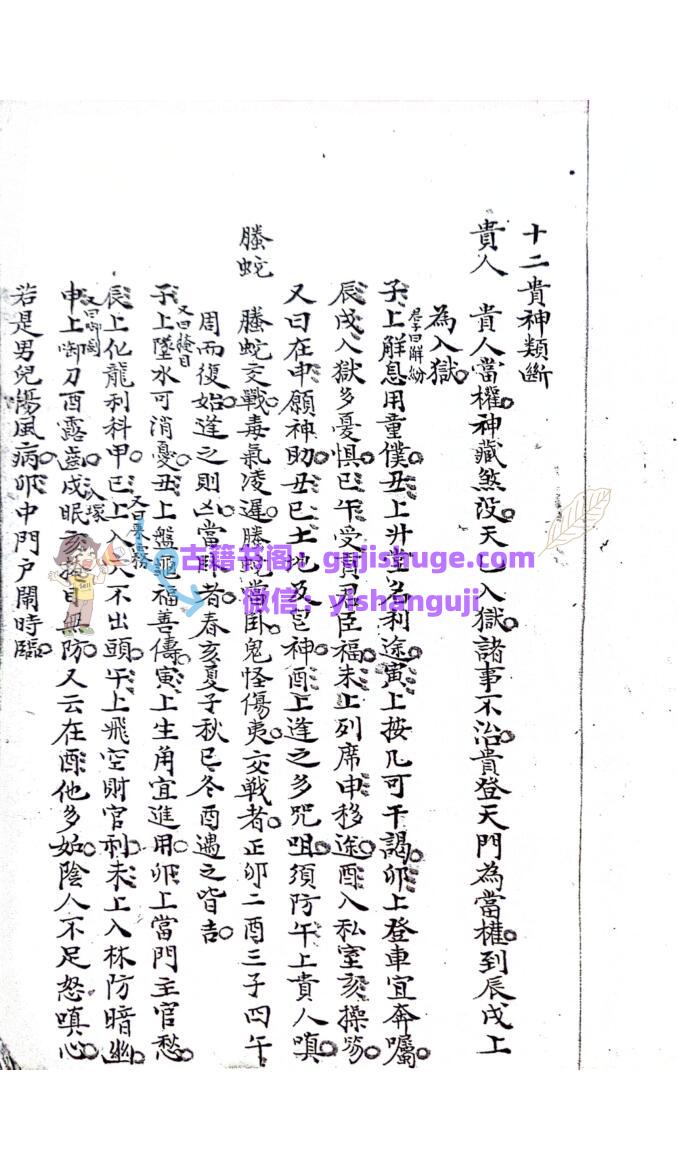 十二貴神類斷
貴人　貴人當權神藏煞没天乙入獄諸事不治貴登天門為當權到辰戌上
為入獄
子上解息用童僕丑上升堂名利途寅上按几可干謁卯上登車宜奔囑
君子曰解紛
辰戌入獄多憂惧巳午受貢君臣福未上列席申移途酉入私室亥操笏
又曰在申願神助丑巳土地及皂神酉上逢之多咒咀須防午上貴人嗔
螣蛇　螣蛇交戰毒氣凌遲螣蛇當卦鬼怪傷夷交戰者正卯二酉三子四午
周而復始逢之則凶當卧者春亥夏子秋巳冬酉遇之皆吉
又曰掩目
子上墜水可消憂丑上盤龜福善儔寅上生角宜進用卯上當門主官愁
又曰乘霧
辰上化龍利科甲巳上入人不出頭午上飛空財官利未上入林防暗幽
又曰啣劍
入塚
申上啣刀酉露齒戌眠亥無防又云在酉他多如陰人不足怒嗔心
若是男兒惕風病卯中門戶鬧時臨
古籍书阁：gujishuge.com
微信：yishanguji